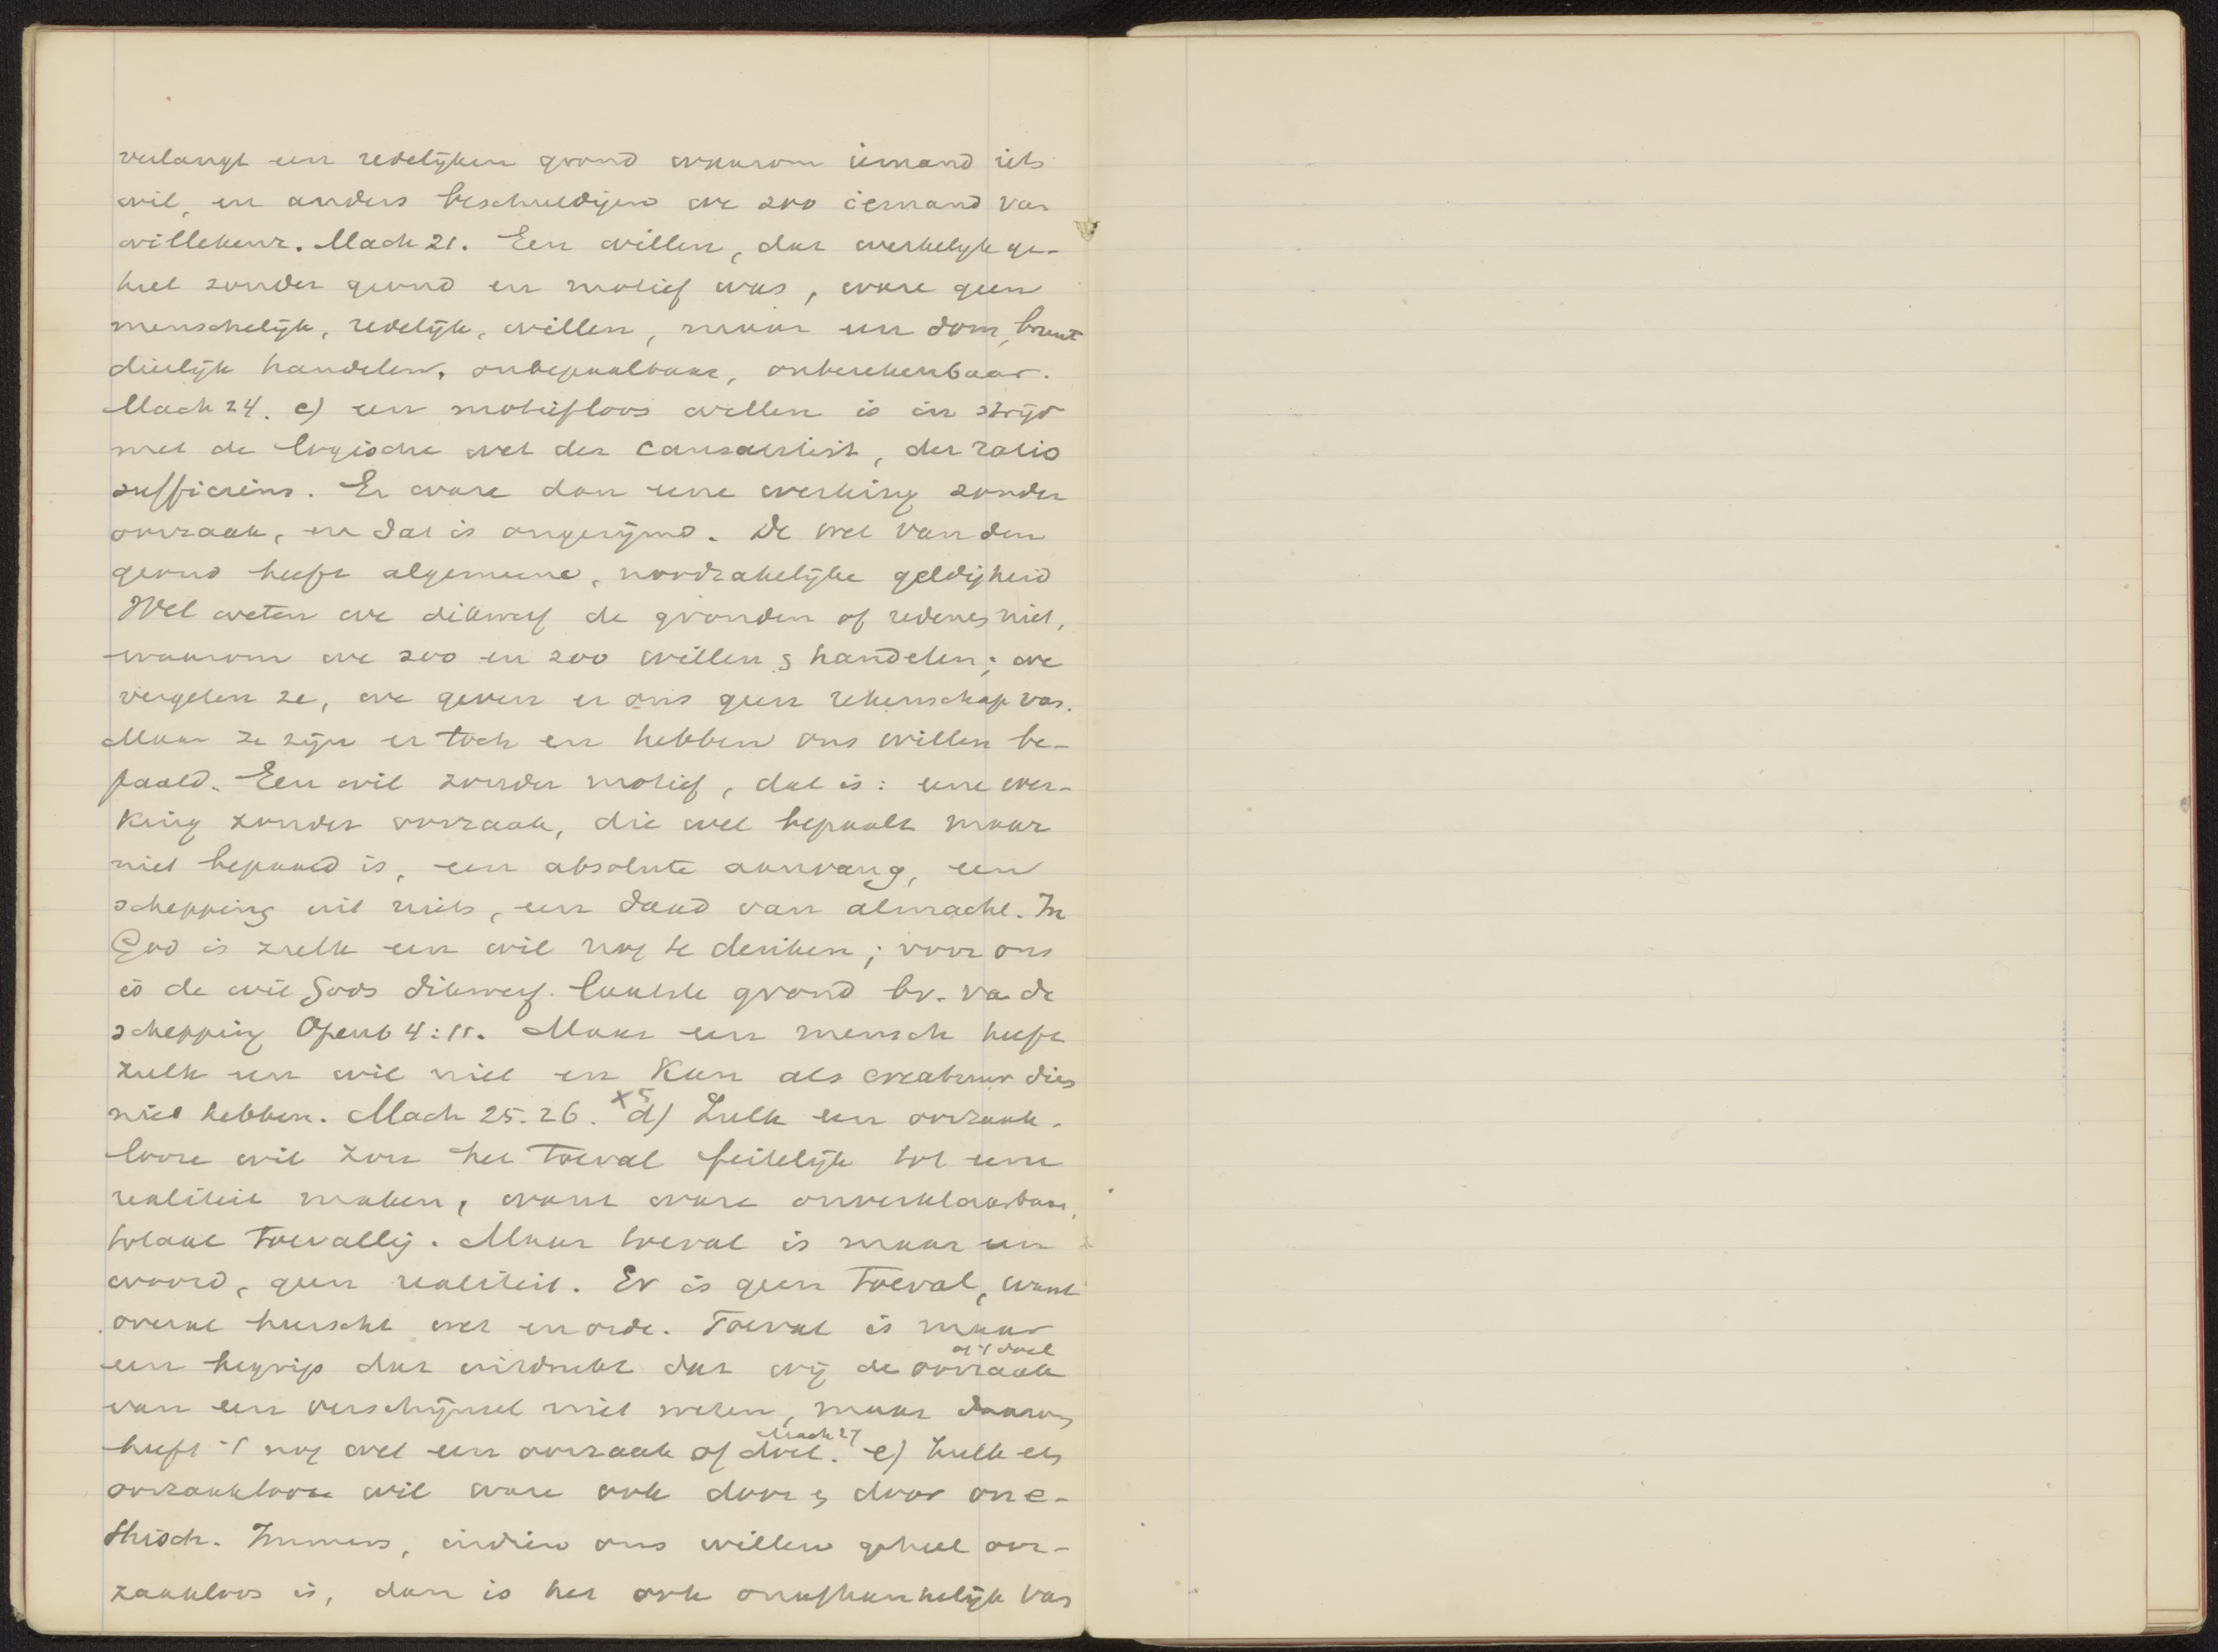 verlangt een redelijken grond waarom iemand iets
wil, en anders beschuldigen we zoo iemand van
willekeur. Mach 21. Een willen, dat werkelijk ge-
heel zonder grond en motief was, ware geen
menschelijk, redelijk, willen, maar een dom, bruut
dierlijk handelen, onbepaalbaar, onberekenbaar.
Mach 24. c) een motiefloos willen is in strijd
met de logische wet der causaliteit, der ratio
sufficiens. Er ware dan eene werking zonder
oorzaak, en dat is ongerijmd. De wet van den
grond heeft algemeene, noodzakelijke geldigheid
Wel weten we dikwerf de gronden of redenen niet,
waarom we zoo en zoo willen & handelen; we
vergeten ze, we geven er ons geen rekenschap van.
Maar ze zijn er toch en hebben ons willen be-
paald. Een wil zonder motief, dat is: eene wer-
king zonder oorzaak, die wel bepaalt maar
niet bepaald is, een absolute aanvang, een
schepping uit niets, een daad van almacht. In
God is zulk een wil nog te denken; voor ons
is de wil Gods dikwerf laatste grond bv. va de
schepping Openb 4:11. Maar een mensch heeft
zulk een wil niet en kan als creatuur dien
niet hebben. Mach 25. 26. x5 d) Zulk een oorzaak-
looze wil zou het toeval feitelijk tot eene
realiteit maken, want ware onverklaarbaar,
totaal toevallig. Maar toeval is maar een
woord, geen realiteit. Er is geen toeval, want
overal heerscht wet en orde. Toeval is maar
of 't doel
een begrip dat uitdrukt dat wij de oorzaak
van een verschijnsel niet weten, maar daarom
Mach 27
heeft 't nog wel een oorzaak of doel. e) Zulk een
oorzaaklooze wil ware ook door & door one-
thisch. Immers, indien ons willen geheel oor-
zaakloos is, dan is het ook onafhankelijk van